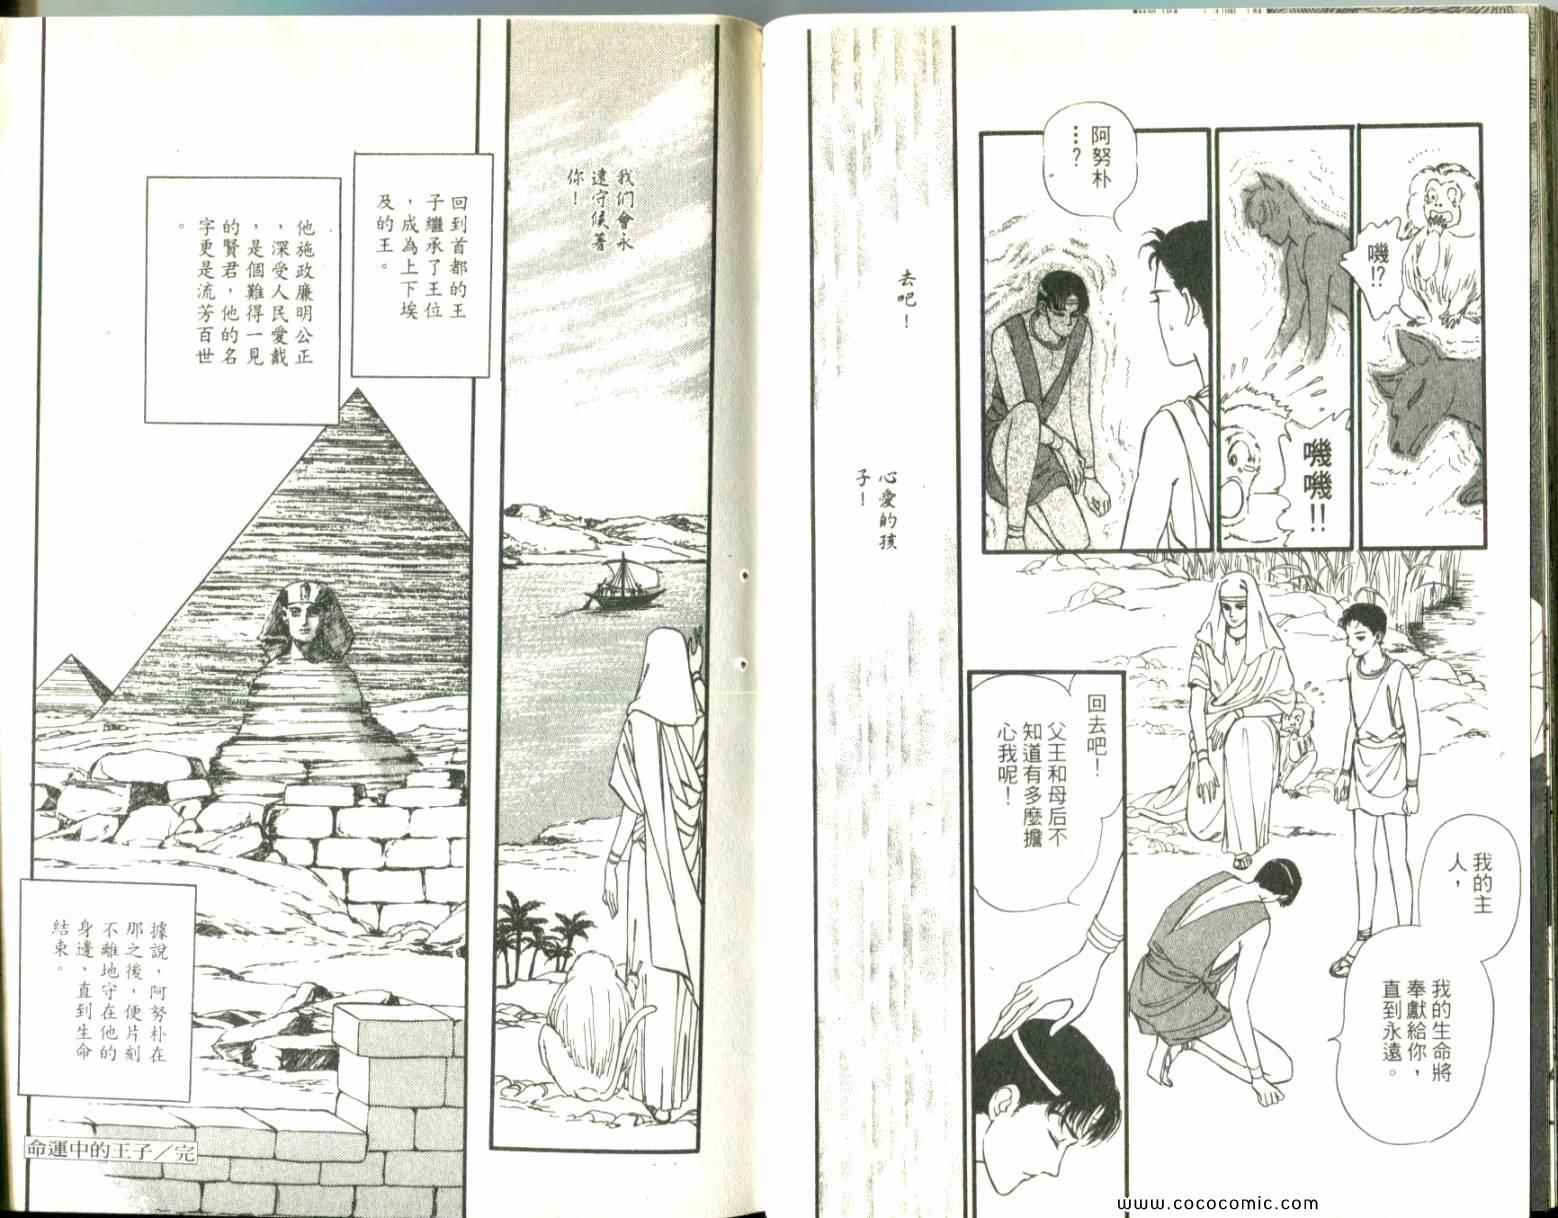 嘰!?
嘰嘰!!
阿努朴
…?
我的主
人，
我的生命將
奉獻給你，
直到永遠。
回去吧！
父王和母后不
知道有多麼擔
心我呢！
去吧！
心愛的孩
子！
我們會永
遠守候著
你！
回到首都的王
子繼承了王位
，成為上下埃
及的王。
他施政廉明公正
，深受人民愛戴
，是個難得一見
的賢君，他的名
字更是流芳百世
。
據說，阿努朴在
那之後，便片刻
不離地守在他的
身邊，直到生命
結束。
命運中的王子／完
www.cococomic.com